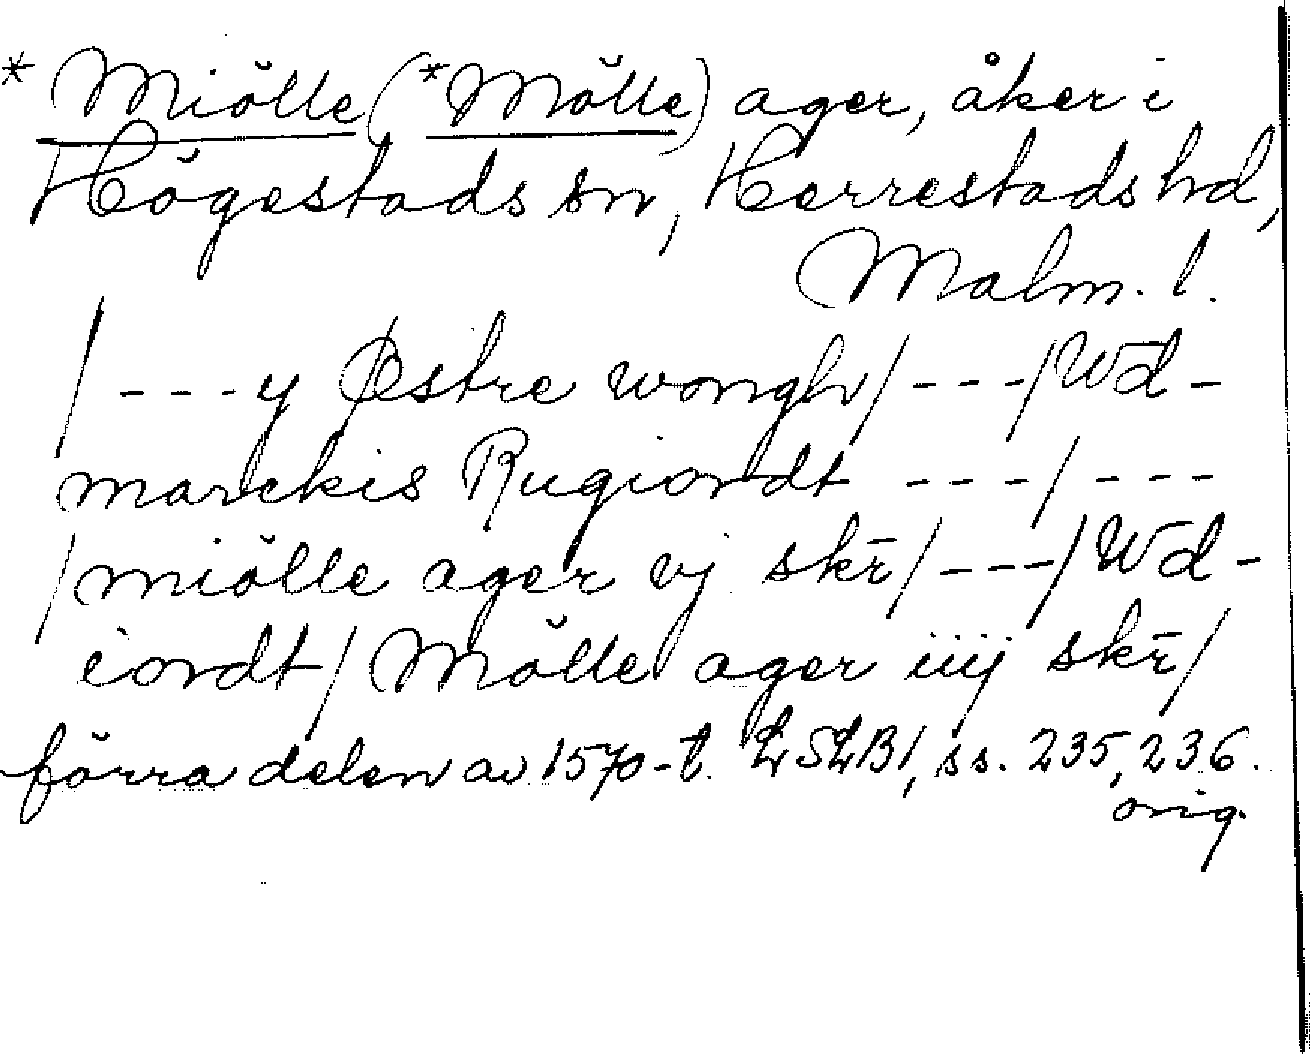 * Miölle (*Mölle) ager, åker i
Högestads sn, Herrestads hd,
Malm. l.
/ - - - y Østre wongh / - - - / Wd̄ -
marckis Rugiordt - - - / - - -
/ miölle ager vj skr̄ / - - - / Wd̄ -
iordt / Mölle ager iiij skr̄ /
förra delen av 1570-t. LSLB1, ss. 235, 236.
orig.